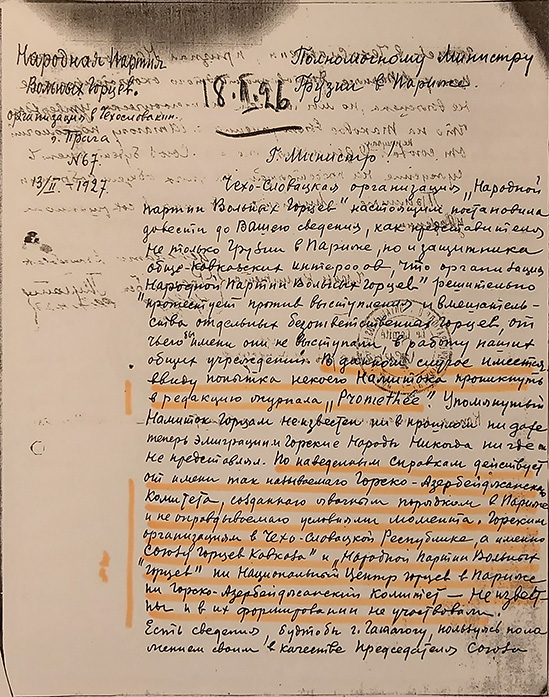 Народная Партия
Вольных Горцев.
организация в Чехословакии.
г. Прага
N 67
13/II – 1927.
Полномочному Министру
Грузии в Париже.
18.II.926
Г. Министр!
Чехо-Словацкая организация „Народной
партии Вольных Горцев" настоящим постановила
довести до Вашего сведения, как представителя
не только Грузии в Париже, но и защитника
обще-кавказских интересов, что организация
„Народной Партии Вольных Горцев" решительно
протестует против выступления и вмешатель-
ства отдельных безответственных Горцев, от
чьего имени они не выступали, в работу наших
общих учреждений. В данном случае имеется
ввиду попытка некоего Налитока проникнуть
в редакцию журнала „Prométhée". Упомянутый
Налиток Горцам неизвестен ни в прошлом ни даже
теперь эмиграции Горские Народы никогда нигде
не представлял. По наведенным справкам действует
от имени так называемаго Горско-Азербейджанскаго
Комитета, созданнаго явочным порядком в Париже
и не оправдываемаго условиями момента. Горским
организациям в Чехо-Словацкой Республике, а именно
„Союзу Горцев Кавказа" и „Народной Партии Вольных
Горцев" ни Национальный Центр Горцев в Париже
ни Горско-Азербейджанский Комитет — неизвест-
ны и в их формировании не участвовали.
Есть сведения, будтобы г. пользуясь поло
жением своим в качестве Председателя Союза